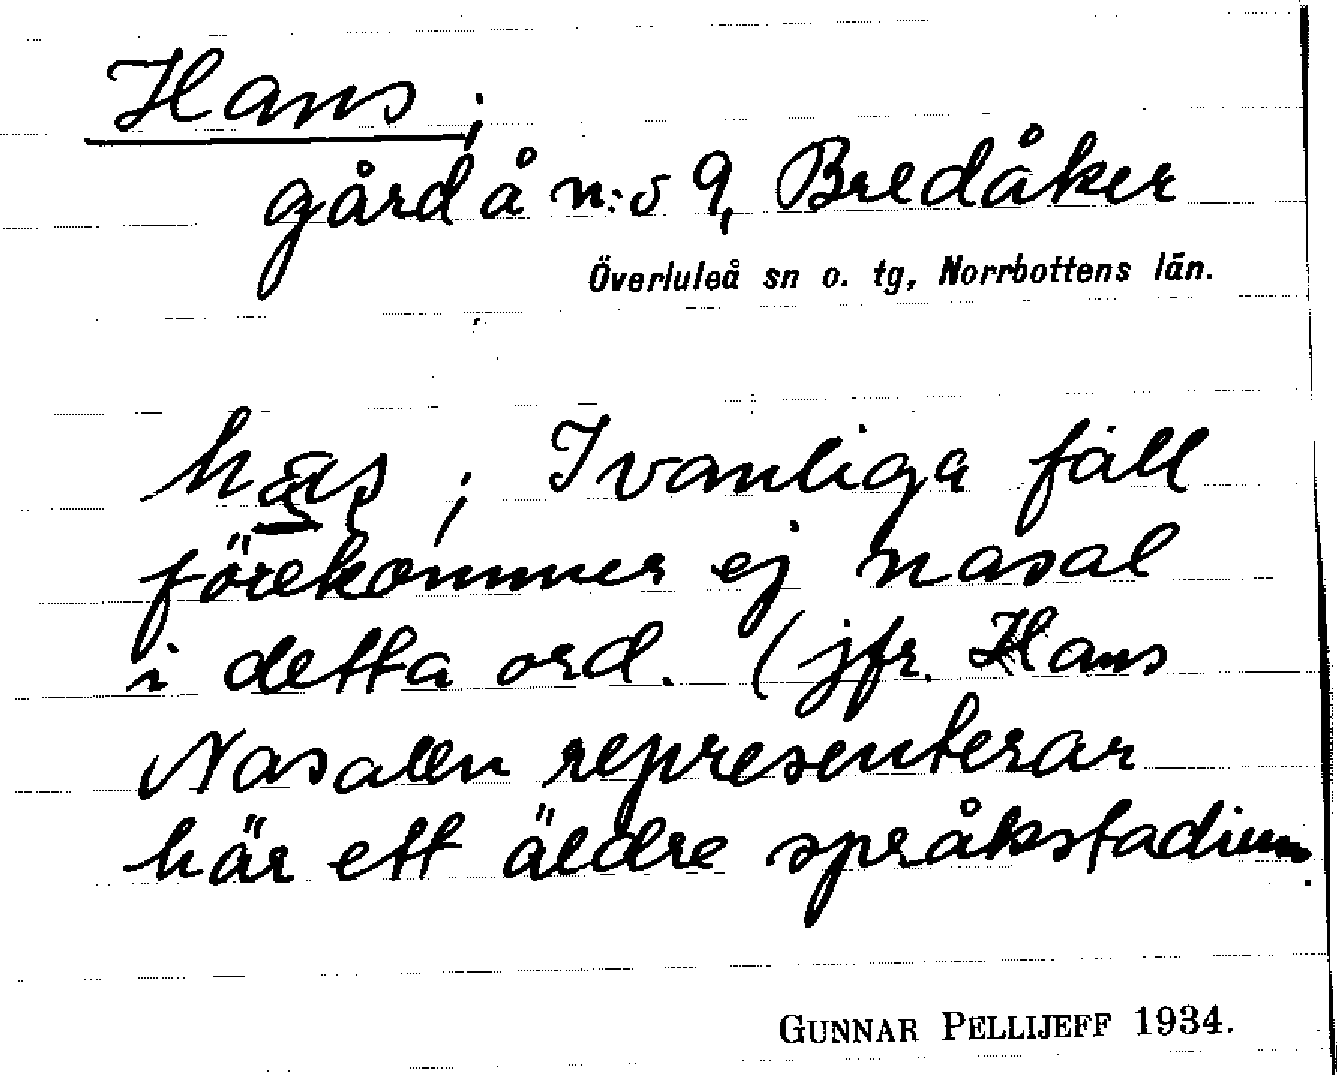 Hans;
gård å n:o 9, Bredåker
Överluleå sn o. tg, Norrbottens län.
; I vanliga fall
förekommer ej nasal
i detta ord. (jfr. Hans
Nasalen representerar
här ett äldre språkstadium.
GUNNAR PELLIJEFF 1934.